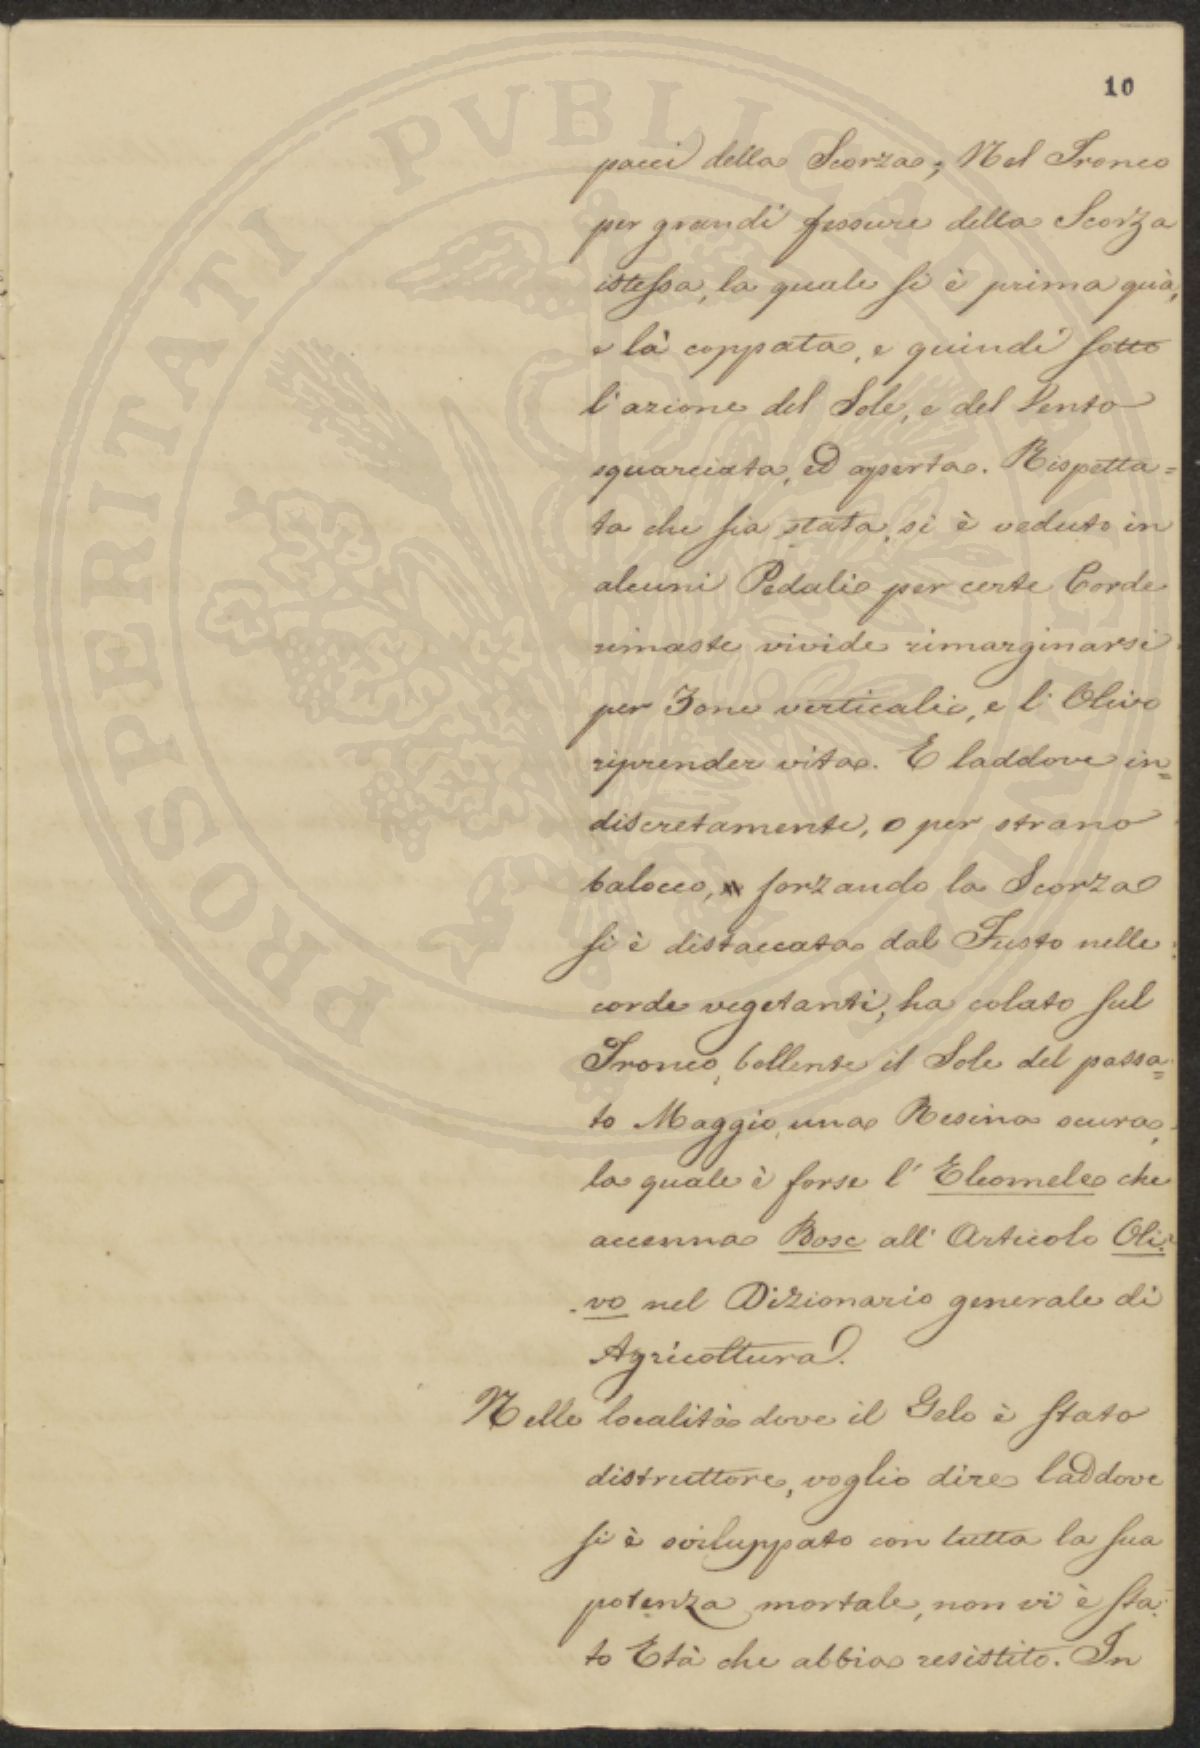 10
PROSPERITATI PVBLICAE
pacci della Scorza; Nel Tronco
per grandi fessure della Scorza
istessa, la quale si è prima quà,
e là coppata, e quindi sotto
l'azione del Sole, e del Vento
squarciata, ed aperta. Rispetta=
ta che sia stata, si è veduto in
alcuni Pedali per certe Corde
rimaste vivide rimarginarsi
per Zone verticali, e l'Olivo
riprender vita. E laddove in=
discretamente, o per strano
balocco, forzando la Scorza
si è distaccata dal Fusto nelle
corde vegetanti, ha colato sul
Tronco, bollente il Sole del passa=
to Maggio, una Resina scura,
la quale è forse l'Eleomele che
accenna Bosc all'Articolo Oli=
vo nel Dizionario generale di
Agricoltura.
Nelle località dove il Gelo è stato
distruttore, voglio dire laddove
si è sviluppato con tutta la sua
potenza mortale, non vi è sta=
to Età che abbia resistito. In